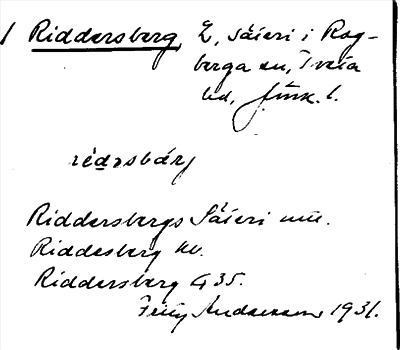 1 Riddersberg, 2, säteri i Rog-
berga sn, Tveta
hd, Jönk. l.
rèdəsbárj
Riddersbergs Säteri mtl.
Riddesberg kv.
Riddersberg G 35.
Andersson 1931.